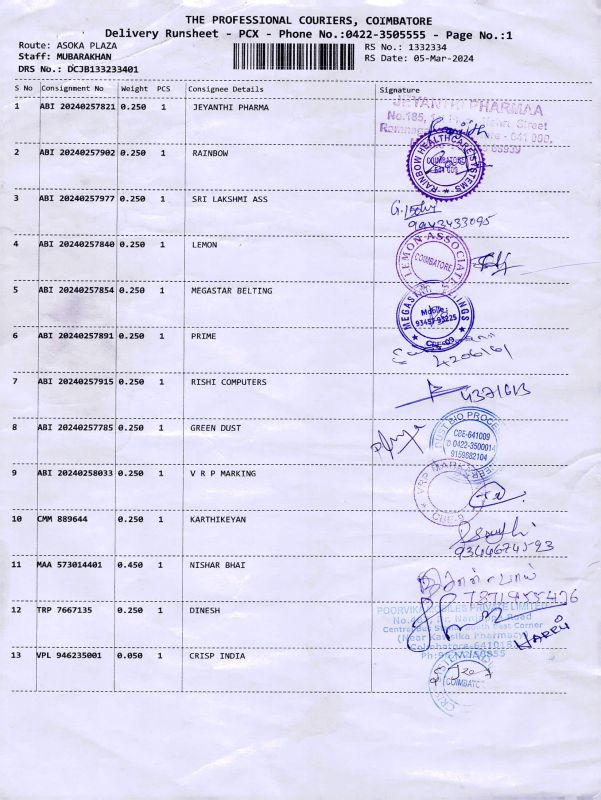 THE PROFESSIONAL COURIERS, COIMBATORE
Delivery Runsheet - PCX - Phone No.:0422-3505555 - Page No.:1
Route: ASOKA PLAZA
RS No.: 1332334
Staff: MUBARAKHAN
RS Date: 05-Mar-2024
DRS No.: DCJB133233401
S No Consignment No Weight PCS Consignee Details Signature
1 ABI 20240257821 0.250 1 JEYANTHI PHARMA
JEYANTHI PHARMAA
No.185,
Street
641 000,
2 ABI 20240257902 0.250 1 RAINBOW
RAINBOW HEALTHCARE SYSTEMS
COIMBATORE
3 ABI 20240257977 0.250 1 SRI LAKSHMI ASS
9943433095
4 ABI 20240257840 0.250 1 LEMON
LEMON ASSOCIATES
COIMBATORE
5 ABI 20240257854 0.250 1 MEGASTAR BELTING
Mobile:
93457-93225
CBE-09
6 ABI 20240257891 0.250 1 PRIME
4206161
7 ABI 20240257915 0.250 1 RISHI COMPUTERS
4371613
8 ABI 20240257785 0.250 1 GREEN DUST
DUST BIO PROCE
CBE-641009
0422-3500014
9159682104
9 ABI 20240258033 0.250 1 V R P MARKING
VRP MARK
CBE-9
10 CMM 889644 0.250 1 KARTHIKEYAN
9344674593
11 MAA 573014401 0.450 1 NISHAR BHAI
7871955476
12 TRP 7667135 0.250 1 DINESH
POORVIKA MOBILES PRIVATE LIMITED
Road
East Corner
(Near Kanika Pharmacy)
Coimbatore-641018
HARRI
13 VPL 946235001 0.050 1 CRISP INDIA
COIMBATO